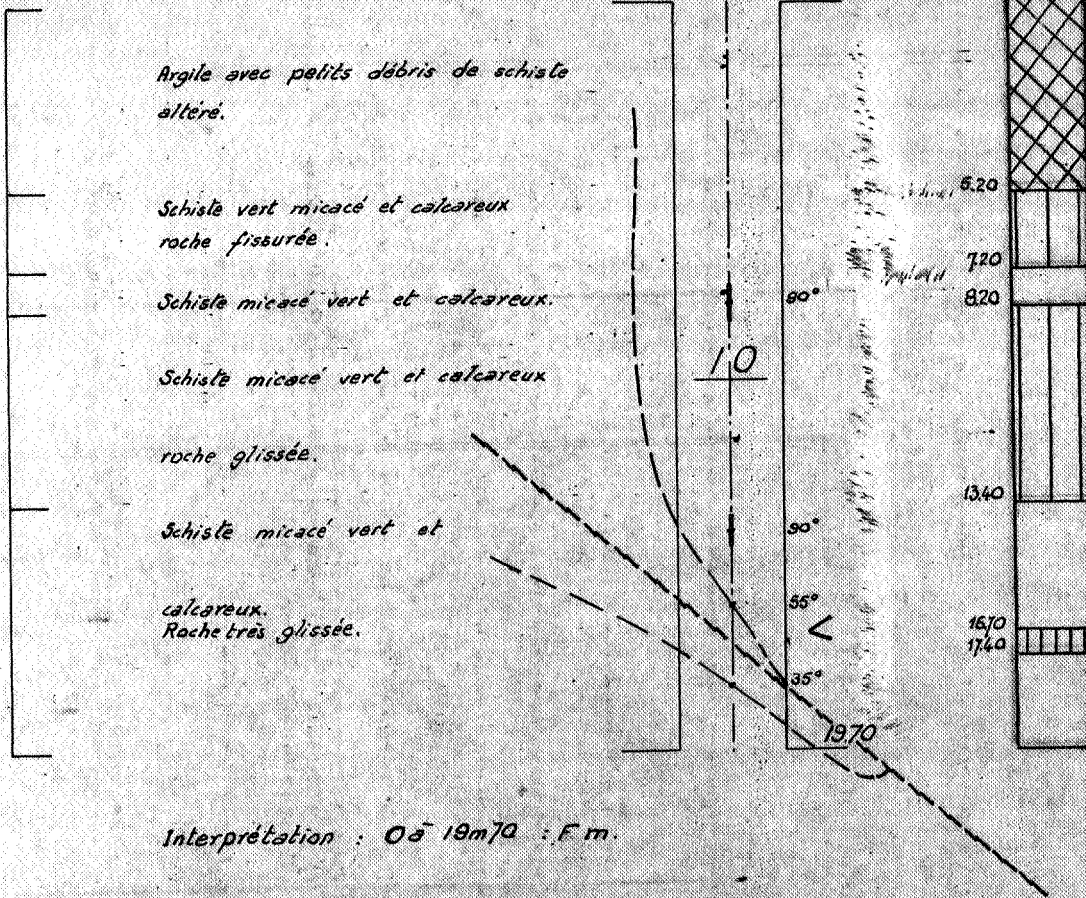 Argile avec petits débris de schiste
altéré.
5.20
Schiste vert micacé et calcareux
roche fissurée.
7.20
Schiste micacé vert et calcareux.
90°
8.20
10
Schiste micacé vert et calcareux
roche glissée.
13.40
Schiste micacé vert et
90°
calcareux.
55°
Roche très glissée.
<
16.70
17.40
35°
19.70
Interprétation : 0 à 19m70 : F m.